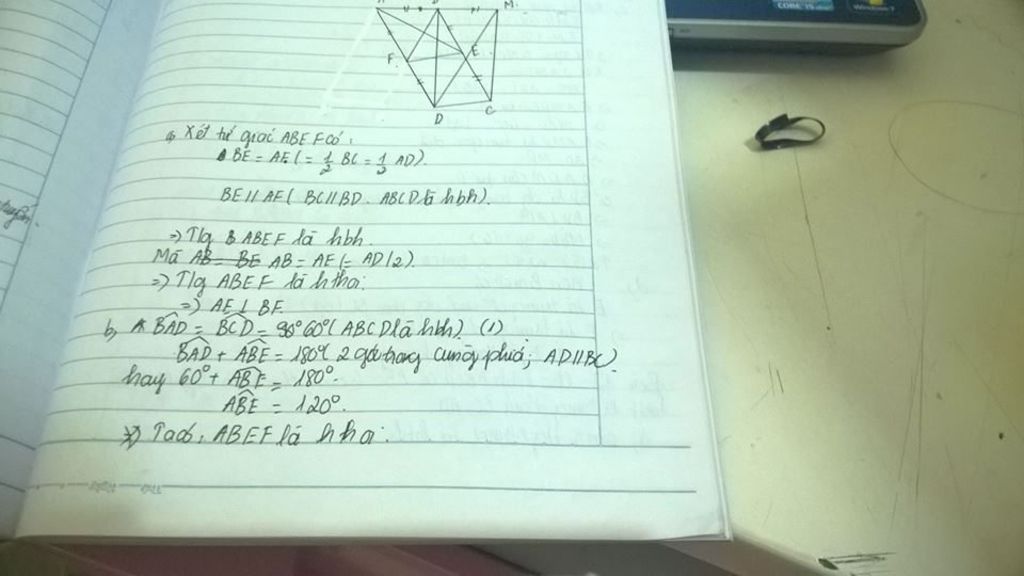 M.
E
F
D
C
a, Xét tứ giác ABEF có:
BE = AF (= 1/2 BC = 1/2 AD).
BE // AF ( BC // BD. ABCD là hbh).
=> Tlg ABEF là hbh.
Mà AB = BE AB = AF (= AD/2).
=> Tlg ABEF là hthoi
=> AE ⊥ BF.
b, BAD = BCD = 60° (ABCD là hbh). (1)
BAD + ABE = 180° ( 2 góc trong cùng phía; AD // BC)
hay 60° + ABE = 180°.
ABE = 120°.
Ta có: ABEF là hthoi.
CORE i5
Windows 7